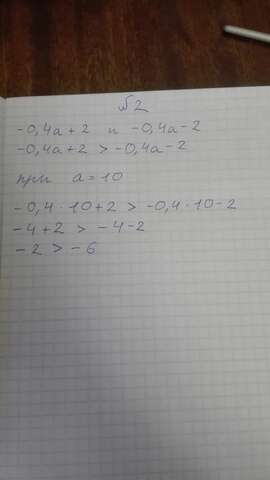 №2
-0,4a+2 и -0,4a-2
-0,4a+2 > -0,4a-2
при a=10
-0,4·10+2 > -0,4·10-2
-4+2 > -4-2
-2 > -6